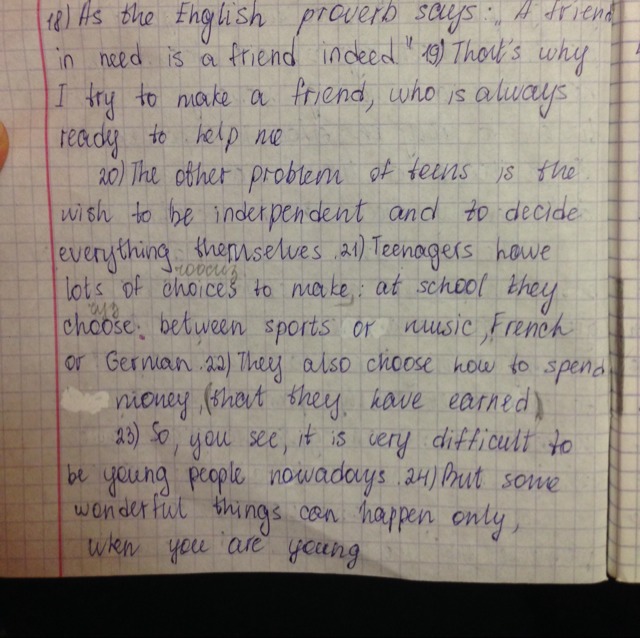 18) As the English proverb says: „ A friend
in need is a friend indeed" 19) That's why
I try to make a friend, who is always
ready to help me
20) The other problem of teens is the
wish to be inderpendent and to decide
everything themselves. 21) Teenagers have
lots of choices to make: at school they
choose: between sports or music, French
or German. 22) They also choose how to spend
money, (that they have earned)
23) So, you see, it is very difficult to
be young people nowadays. 24) But some
wonderful things can happen only,
when you are young